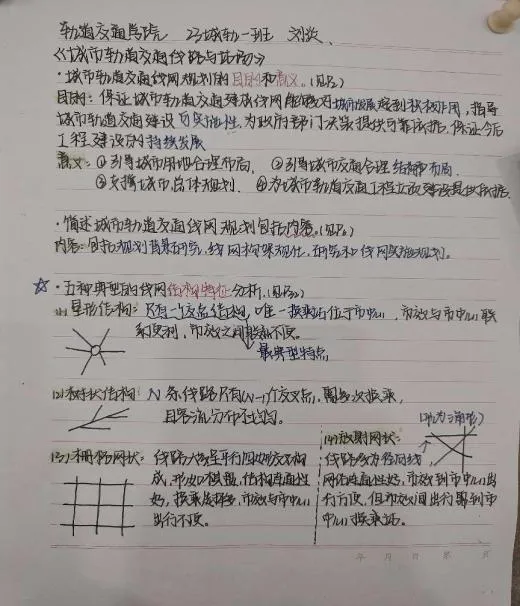 轨道交通学院 23城轨一班 刘炎
《城市轨道交通线路与站场》
·城市轨道交通线网规划的目的和意义。(见P2)
目的：保证城市轨道交通建成线网能够对城市发展起到积极作用，指导
城市轨道交通建设切实可行性，为政府部门决策提供可靠依据，保证今后
工程建设的持续发展
意义：①引导城市用地合理布局，②引导城市交通合理结构布局
③支撑城市总体规划，④为城市轨道交通工程立项建设提供依据。
·简述城市轨道交通线网规划包括内容。(见P6)
内容：包括规划背景研究、线网构架规化、研究和线网实施规划。
☆·五种典型的线网结构特征分析。(见P32)
(1)星形结构：只有一个交点结构，唯一换乘站位于市中心，市放与市中心联
系便利，市放之间联系不便。
最典型特点
(2)树状结构：N条线路只有(N-1)个交叉点，需多次换乘，
且客流分布不均匀。
(3)栅格网状：线路大多呈平行四边形交叉构
成，形如棋盘，结构连通性
好，换乘选择多，市放与市中心
出行不便。
(成为三角形)
(4)放射网状：
线路多为径向线，
网络连通性好，市放到市中心出
行方便，但市放间出行需到市
中心换乘站。
年 月 日 第 页